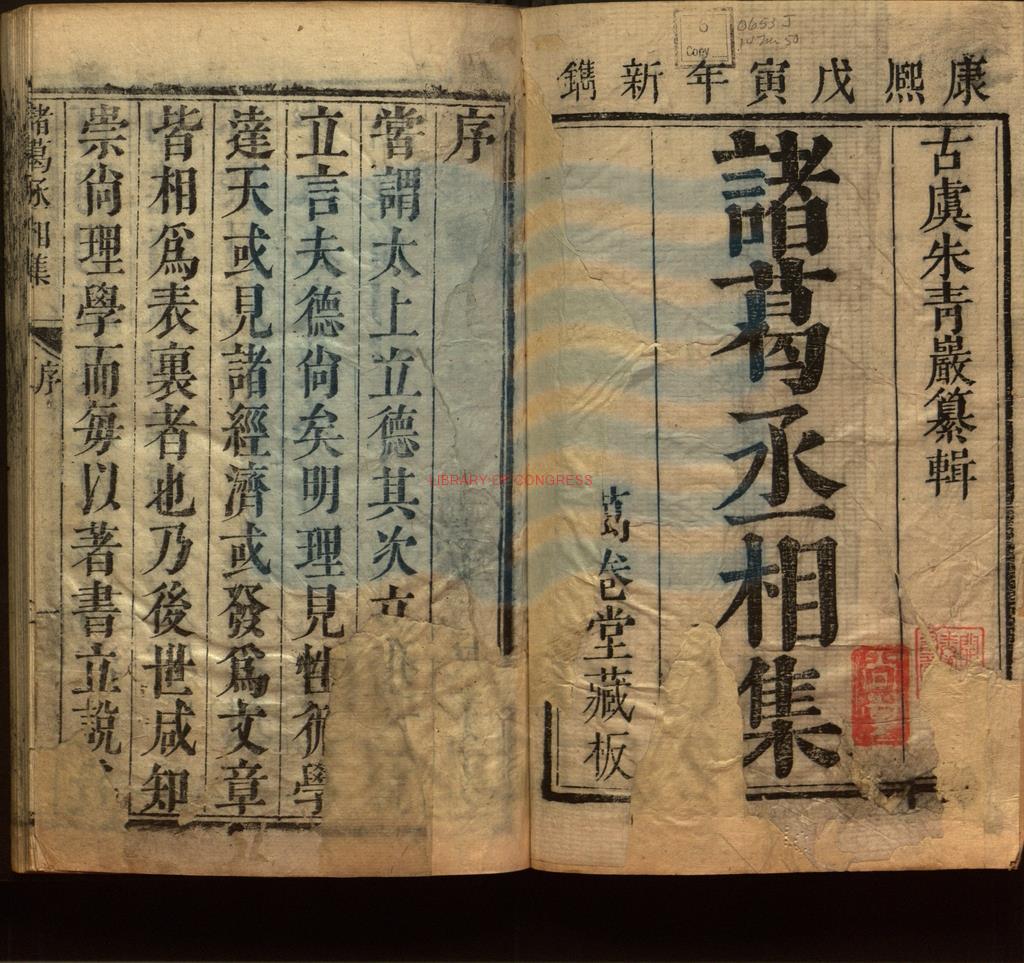 康熙戊寅年新鐫
古虞朱青巖纂輯
諸葛丞相集
萬卷堂藏板
序
嘗謂太上立德其次立
立言夫德尙矣明理見性彻學
達天或見諸經濟或發爲文章
皆相爲表裏者也乃後世咸知
崇尙理學而每以著書立説
諸葛丞相集
序
一
LIBRARY OF CONGRESS
6
Copy